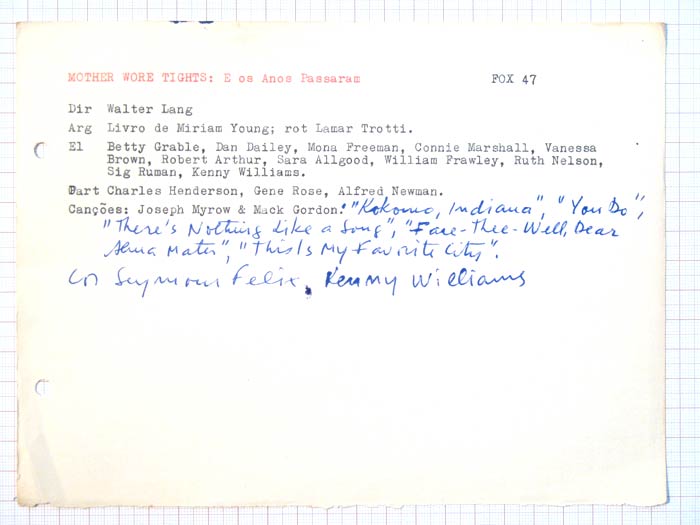 MOTHER WORE TIGHTS: E os Anos Passaram FOX 47
Dir Walter Lang
Arg Livro de Miriam Young; rot Lamar Trotti.
El Betty Grable, Dan Dailey, Mona Freeman, Connie Marshall, Vanessa
Brown, Robert Arthur, Sara Allgood, William Frawley, Ruth Nelson,
Sig Ruman, Kenny Williams.
Part Charles Henderson, Gene Rose, Alfred Newman.
Canções: Joseph Myrow & Mack Gordon: "Kokomo, Indiana", "You Do",
"There's Nothing Like a Song", "Fare-Thee-Well, Dear
Alma Mater", "This Is My Favorite City".
Cor Seymour Felix, Kenny Williams